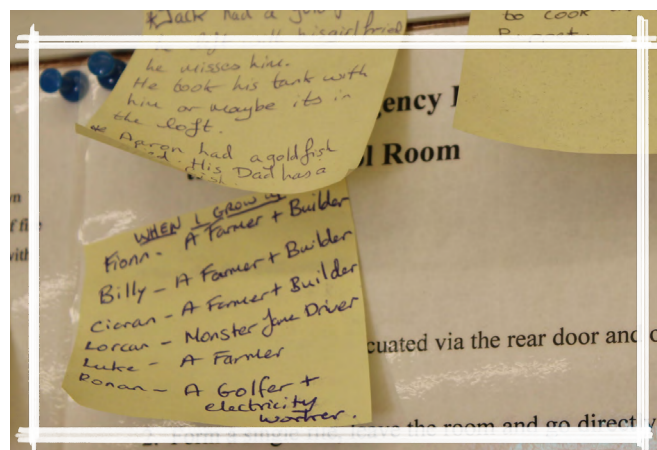 Jack had a
he misses him.
He took his tank with
him or maybe its in
the loft.
Apron had a goldfish
His Dad has a
to cook
WHEN I GROW UP
Fionn - A Farmer + Builder
Billy - A Farmer + Builder
Ciaran - A Farmer + Builder
Lorcan - Monster Jam Driver
Luke - A Farmer
Ronan - A Golfer +
electricity
worker.
Room
cuated via the rear door and
leave the room and go directly